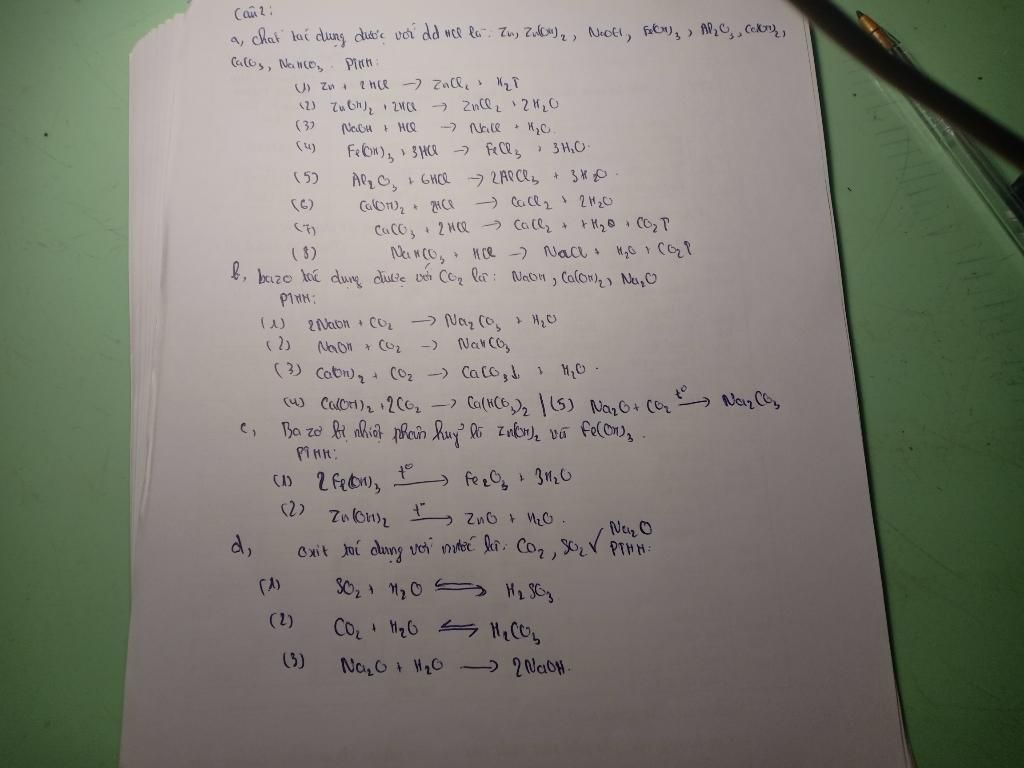 Câu 2:
a, chất tác dụng được với dd HCl là: Zn, Zn(OH)₂, NaOH, Fe(OH)₃, Al₂O₃, Ca(OH)₂,
CaCO₃, NaHCO₃. PTHH:
(1) Zn + 2HCl → ZnCl₂ + H₂↑
(2) Zn(OH)₂ + 2HCl → ZnCl₂ + 2H₂O
(3) NaOH + HCl → NaCl + H₂O.
(4) Fe(OH)₃ + 3HCl → FeCl₃ + 3H₂O.
(5) Al₂O₃ + 6HCl → 2AlCl₃ + 3H₂O.
(6) Ca(OH)₂ + 2HCl → CaCl₂ + 2H₂O
(7) CaCO₃ + 2HCl → CaCl₂ + H₂O + CO₂↑
(8) NaHCO₃ + HCl → NaCl + H₂O + CO₂↑
b, bazo tác dụng được với CO₂ là: NaOH, Ca(OH)₂, Na₂O
PTHH:
(1) 2NaOH + CO₂ → Na₂CO₃ + H₂O
(2) NaOH + CO₂ → NaHCO₃
(3) Ca(OH)₂ + CO₂ → CaCO₃↓ + H₂O.
(4) Ca(OH)₂ + 2CO₂ → Ca(HCO₃)₂ | (5) Na₂O + CO₂ t° → Na₂CO₃
c, Bazo bị nhiệt phân huỷ là Zn(OH)₂ và Fe(OH)₃.
PTHH:
(1) 2Fe(OH)₃ t° → Fe₂O₃ + 3H₂O
(2) Zn(OH)₂ t° → ZnO + H₂O.
d, oxit tác dụng với nước là: CO₂, SO₂ √ Na₂O
PTHH:
(1) SO₂ + H₂O ⇌ H₂SO₃
(2) CO₂ + H₂O ⇌ H₂CO₃
(3) Na₂O + H₂O → 2NaOH.